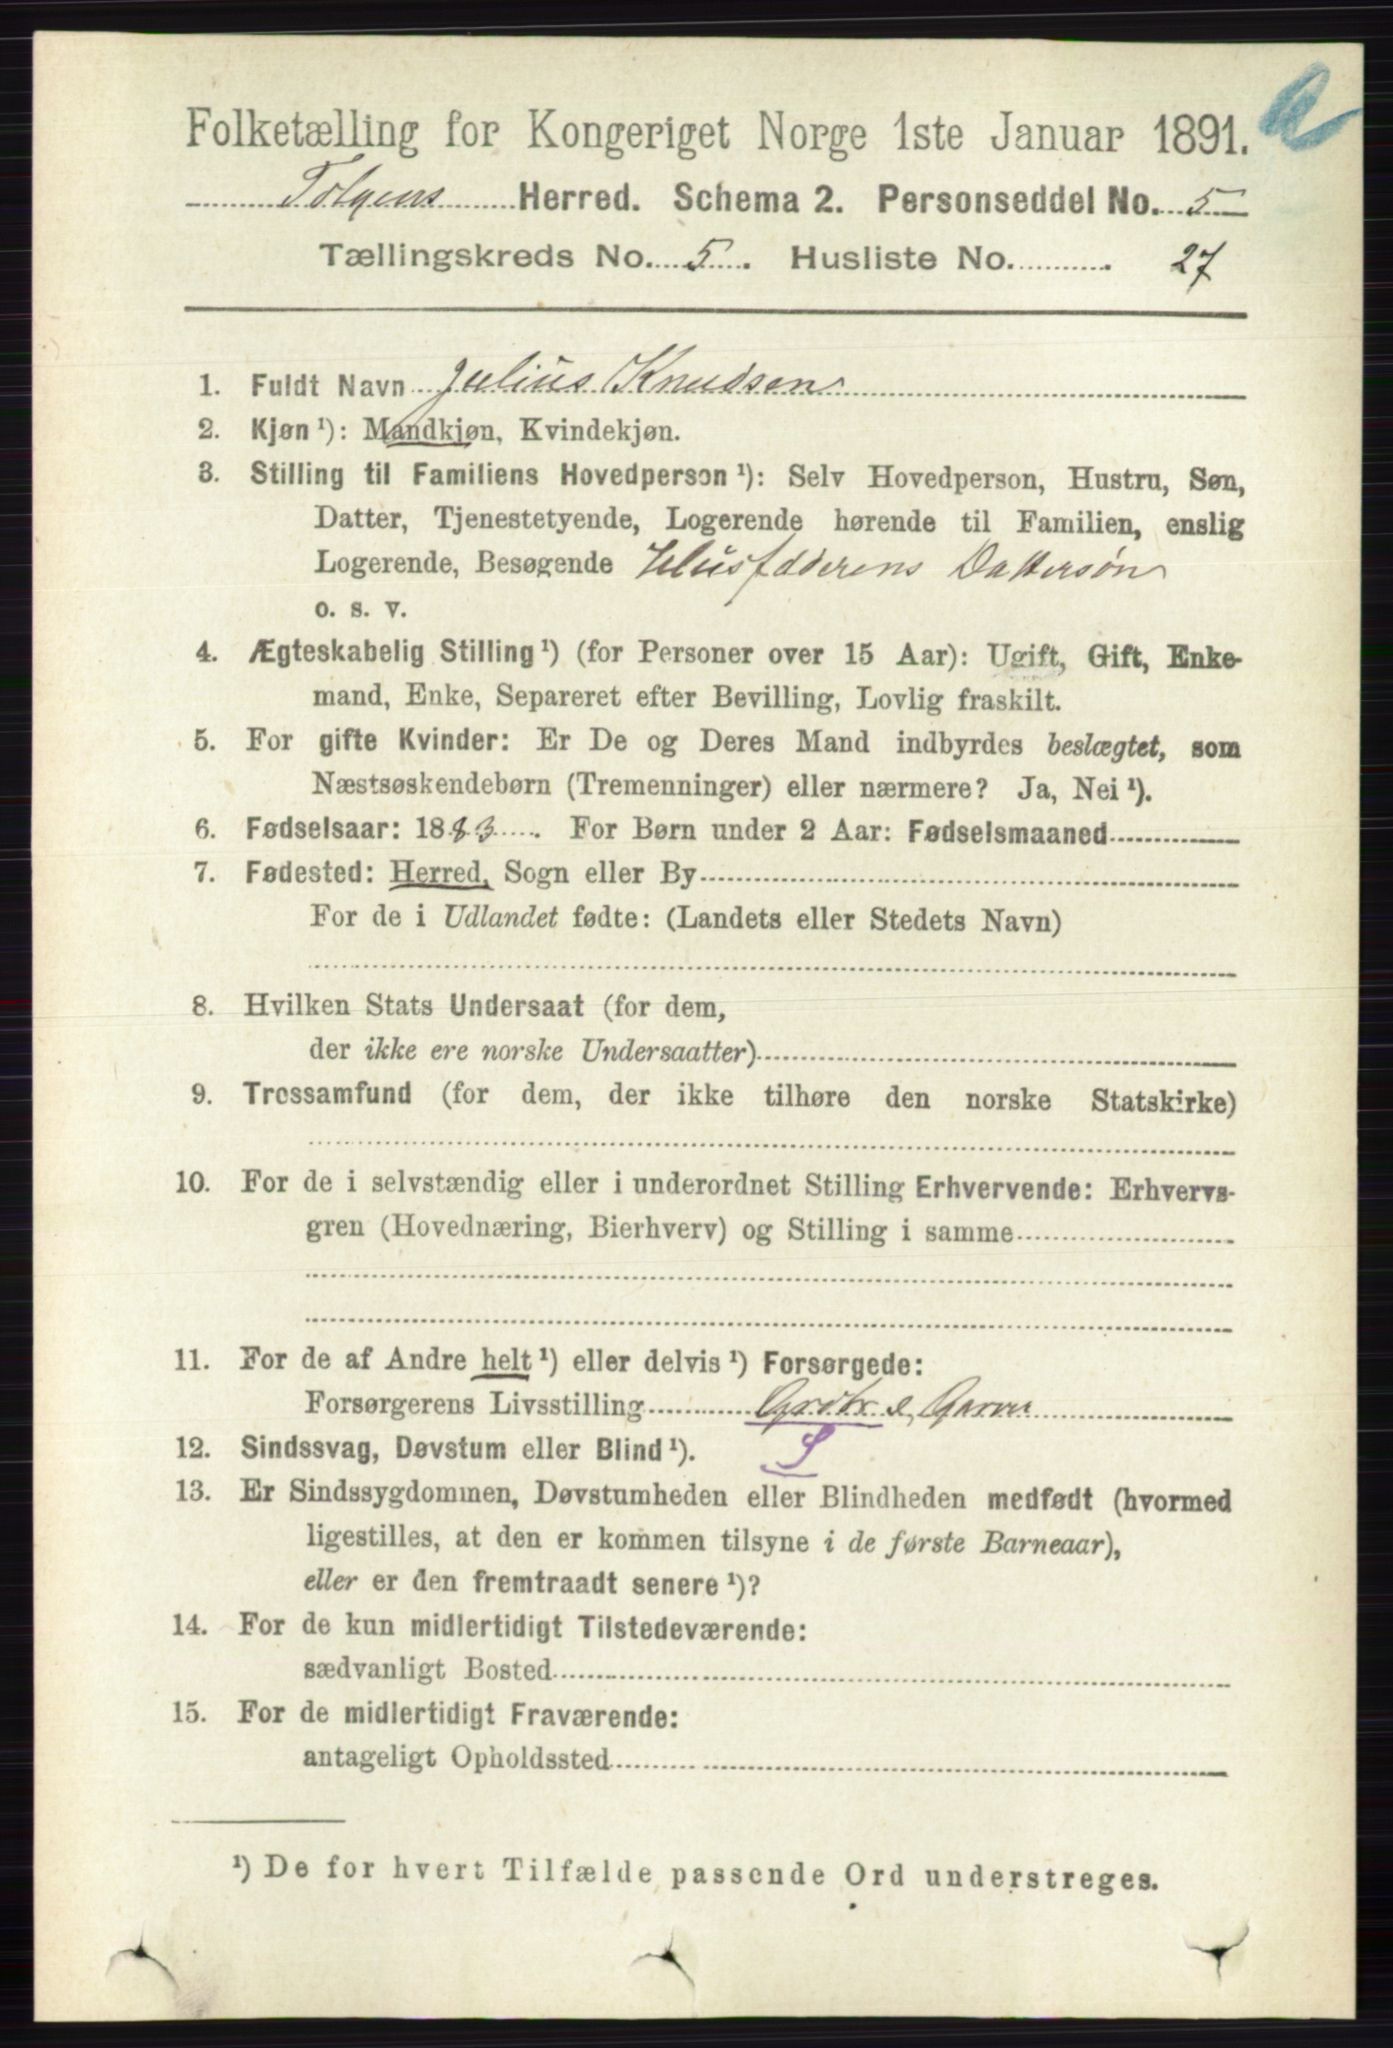 Folketælling for Kongeriget Norge 1ste Januar 1891.
Tolgens Herred. Schema 2. Personseddel No. 5
Tællingskreds No. 5. Husliste No. 27
1. Fuldt Navn Julius Knudsen
2. Kjøn ¹): Mandkjøn, Kvindekjøn.
3. Stilling til Familiens Hovedperson ¹): Selv Hovedperson, Hustru, Søn,
Datter, Tjenestetyende, Logerende hørende til Familien, enslig
Logerende, Besøgende Husfaderens Dattersøn
o. s. v.
4. Ægteskabelig Stilling ¹) (for Personer over 15 Aar): Ugift, Gift, Enke-
mand, Enke, Separeret efter Bevilling, Lovlig fraskilt.
5. For gifte Kvinder: Er De og Deres Mand indbyrdes beslægtet, som
Næstsøskendebørn (Tremenninger) eller nærmere? Ja, Nei ¹).
6. Fødselsaar: 1883. For Børn under 2 Aar: Fødselsmaaned
7. Fødested: Herred, Sogn eller By
For de i Udlandet fødte: (Landets eller Stedets Navn)
8. Hvilken Stats Undersaat (for dem,
der ikke ere norske Undersaatter)
9. Trossamfund (for dem, der ikke tilhøre den norske Statskirke)
10. For de i selvstændig eller i underordnet Stilling Erhvervende: Erhvervs-
gren (Hovednæring, Bierhverv) og Stilling i samme
11. For de af Andre helt ¹) eller delvis ¹) Forsørgede:
Forsørgerens Livsstilling Grdbr
12. Sindssvag, Døvstum eller Blind ¹). S
13. Er Sindssygdommen, Døvstumheden eller Blindheden medfødt (hvormed
ligestilles, at den er kommen tilsyne i de første Barneaar),
eller er den fremtraadt senere ¹)?
14. For de kun midlertidigt Tilstedeværende:
sædvanligt Bosted
15. For de midlertidigt Fraværende:
antageligt Opholdssted
¹) De for hvert Tilfælde passende Ord understreges.